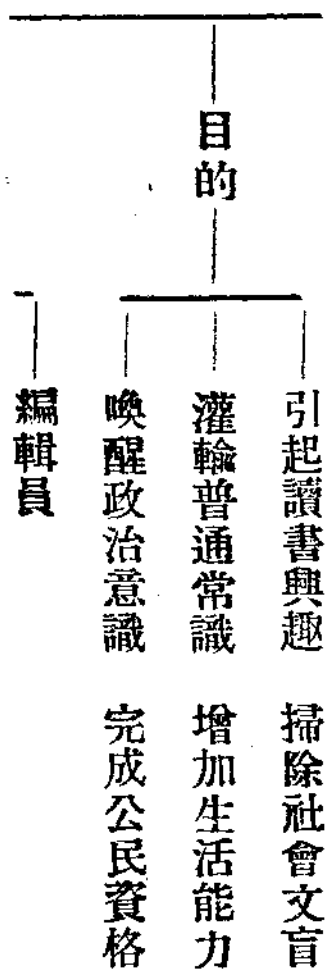 目的
引起讀書興趣　掃除社會文盲
灌輸普通常識　增加生活能力
喚醒政治意識　完成公民資格
編輯員